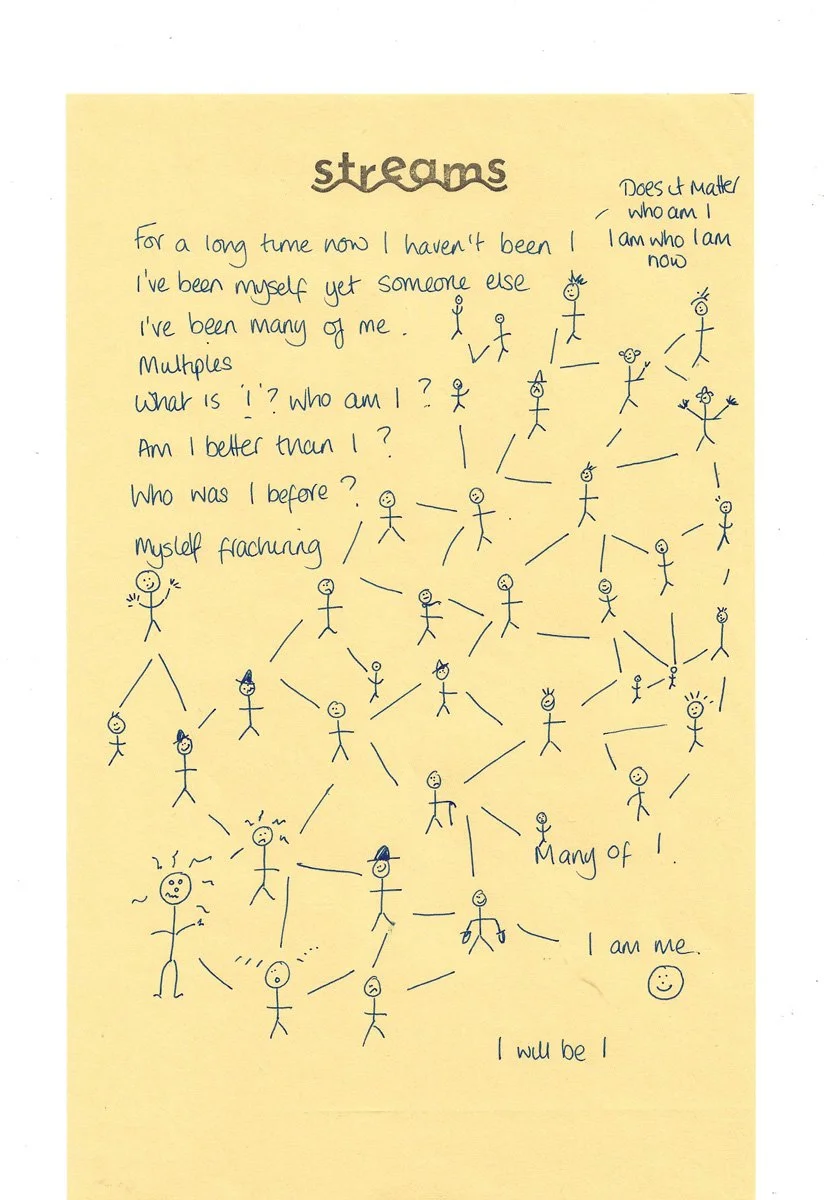 streams
For a long time now I haven't been I
I've been myself yet someone else
I've been many of me.
Multiples
What is 'I'? who am I?
Am I better than I?
Who was I before?
Myslelf fracturing
Does it Matter
who am I
I am who I am
now
Many of I.
I am me.
I will be I